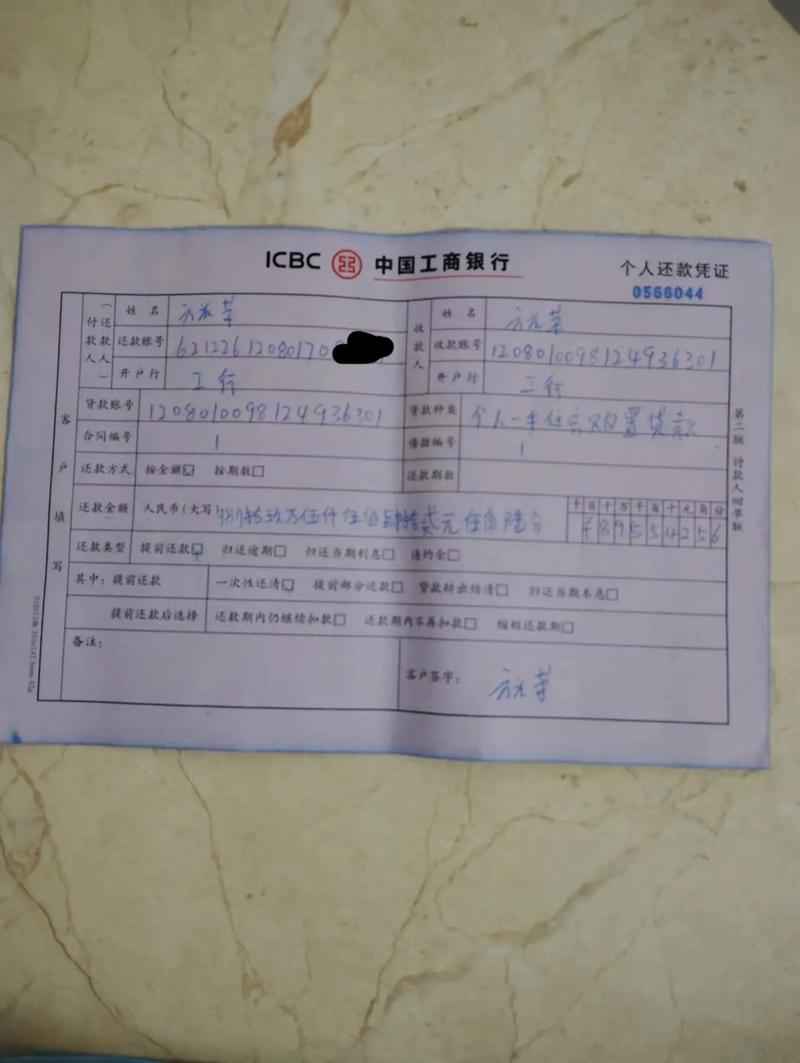 ICBC 中国工商银行
个人还款凭证
0566044
客户填写
付款人(还款人)
姓名 方元苹
还款账号 62122612080170
开户行 工行
收款人
姓名 方元苹
收款账号 1208010098124936301
开户行 工行
贷款账号 1208010098124936301
贷款种类 个人一手住房购置贷款
合同编号
借据编号
还款方式 按金额☑ 按期数□
还款期数
还款金额 人民币(大写) 捌拾玖万伍仟伍佰肆拾贰元伍角陆分
千百十万千百十元角分
¥89554256
还款类型 提前还款☑ 归还逾期□ 归还当期利息□ 违约金□
其中:提前还款 一次性还清☑ 提前部分还款□ 贷款转出结清□ 归还当期本息□
提前还款后选择 还款期内仍继续扣款□ 还款期内不再扣款□ 缩短还款期□
备注:
客户签字: 方元苹
第二联 付款人回单联